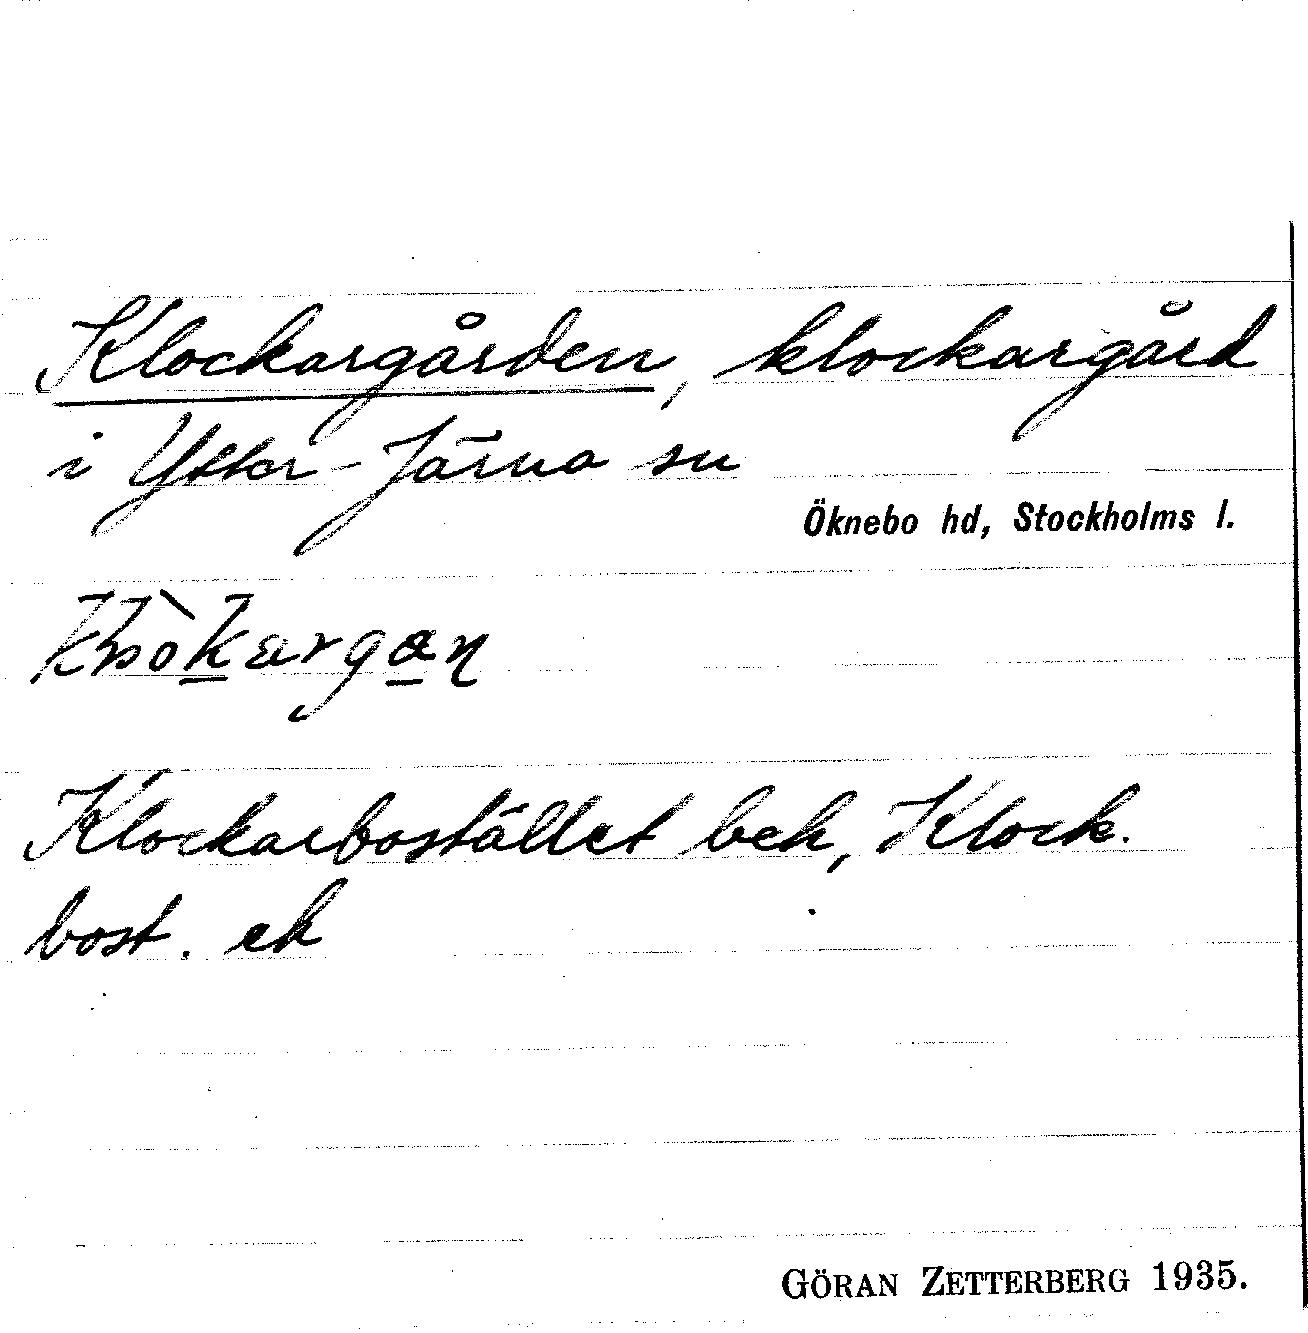 Klockargården, klockargård
i Ytter-Järna sn
Öknebo hd, Stockholms l.
Klockarbostället bek, Klock.
bost. ek
GÖRAN ZETTERBERG 1935.